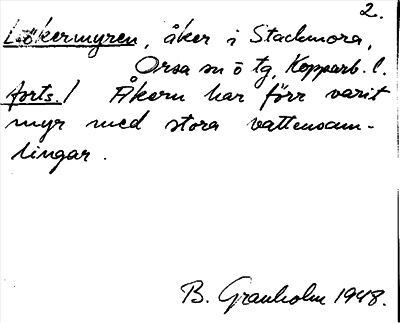 2.
Lökermyren, åker i Stackmora,
Orsa sn ö tg, Kopparb. l.
forts./ Åkern har förr varit
myr med stora vattensam-
lingar.
B. Granholm 1948.